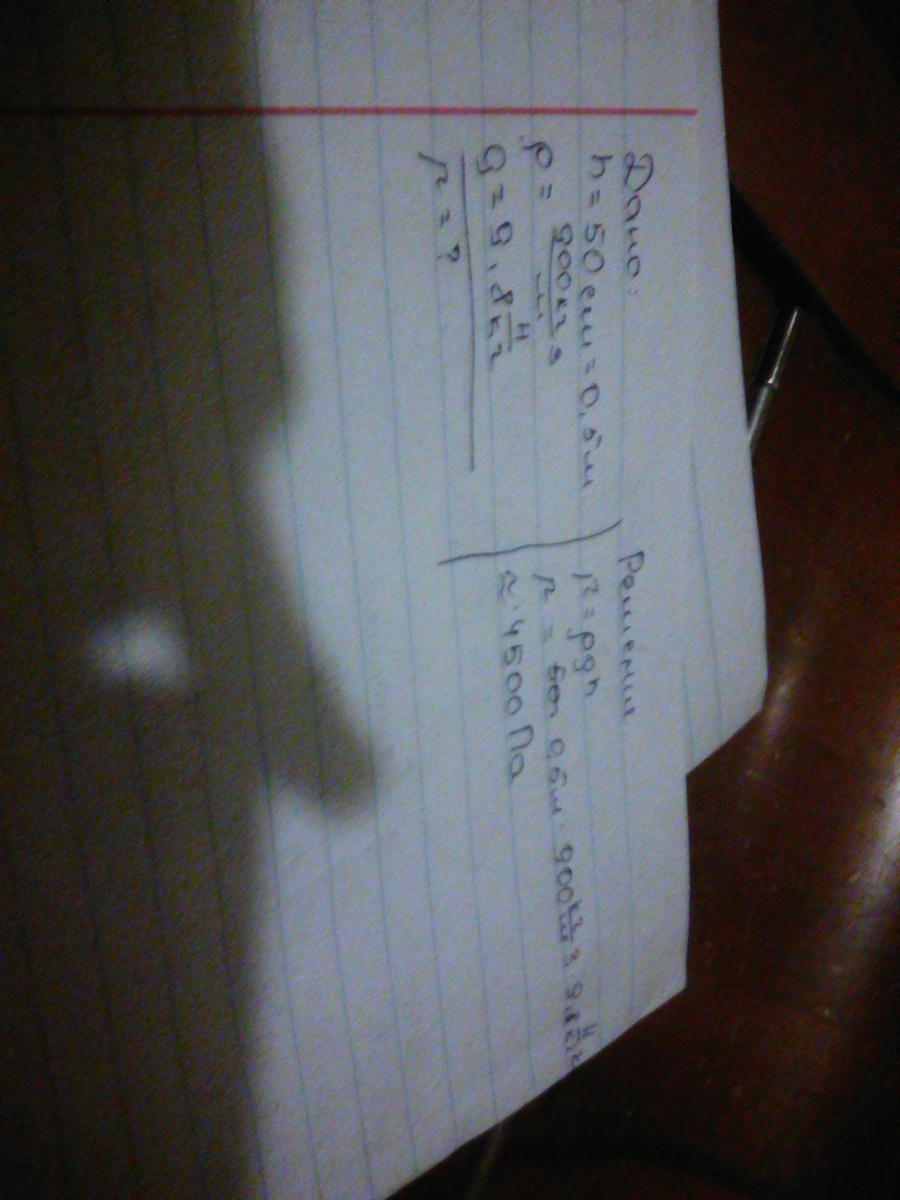 Дано:
h = 50 см = 0,5м
ρ = 900кг/м3
g = 9,8 Н/кг
p = ?
Решение
p = ρgh
p = 0,5м · 900 кг/м3 · 9,8 Н/кг
≈ 4500 Па